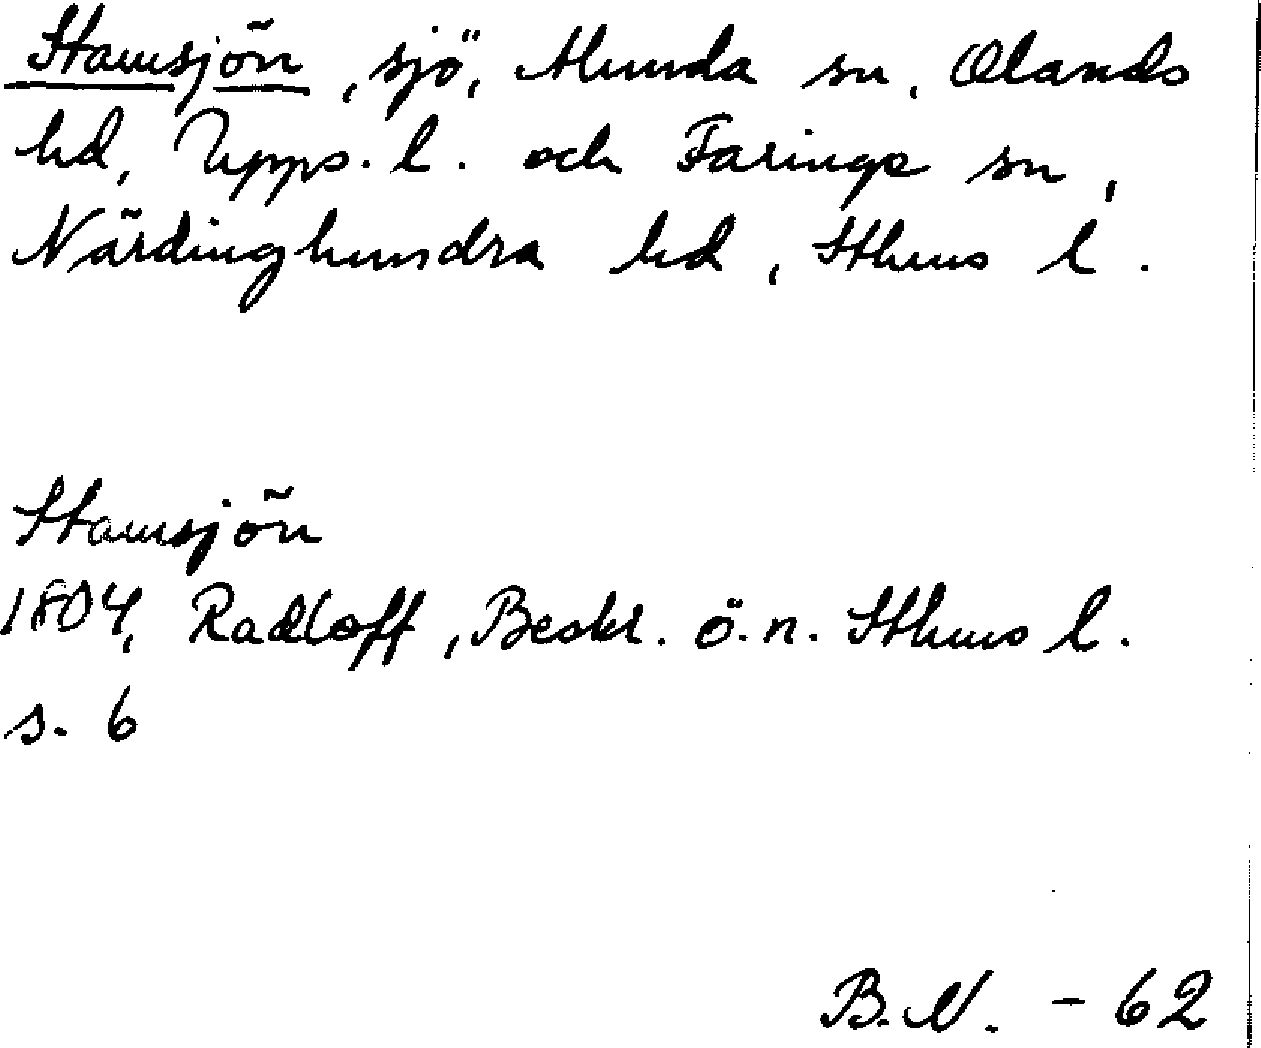 Stamsjön, sjö, Alunda sn, Olands
hd, Upps. l. och Faringe sn,
Närdinghundra hd, Sthms l.
Stamsjön
1804, Radloff, Beskr. ö. n. Sthms l.
s. 6
B. N. - 62